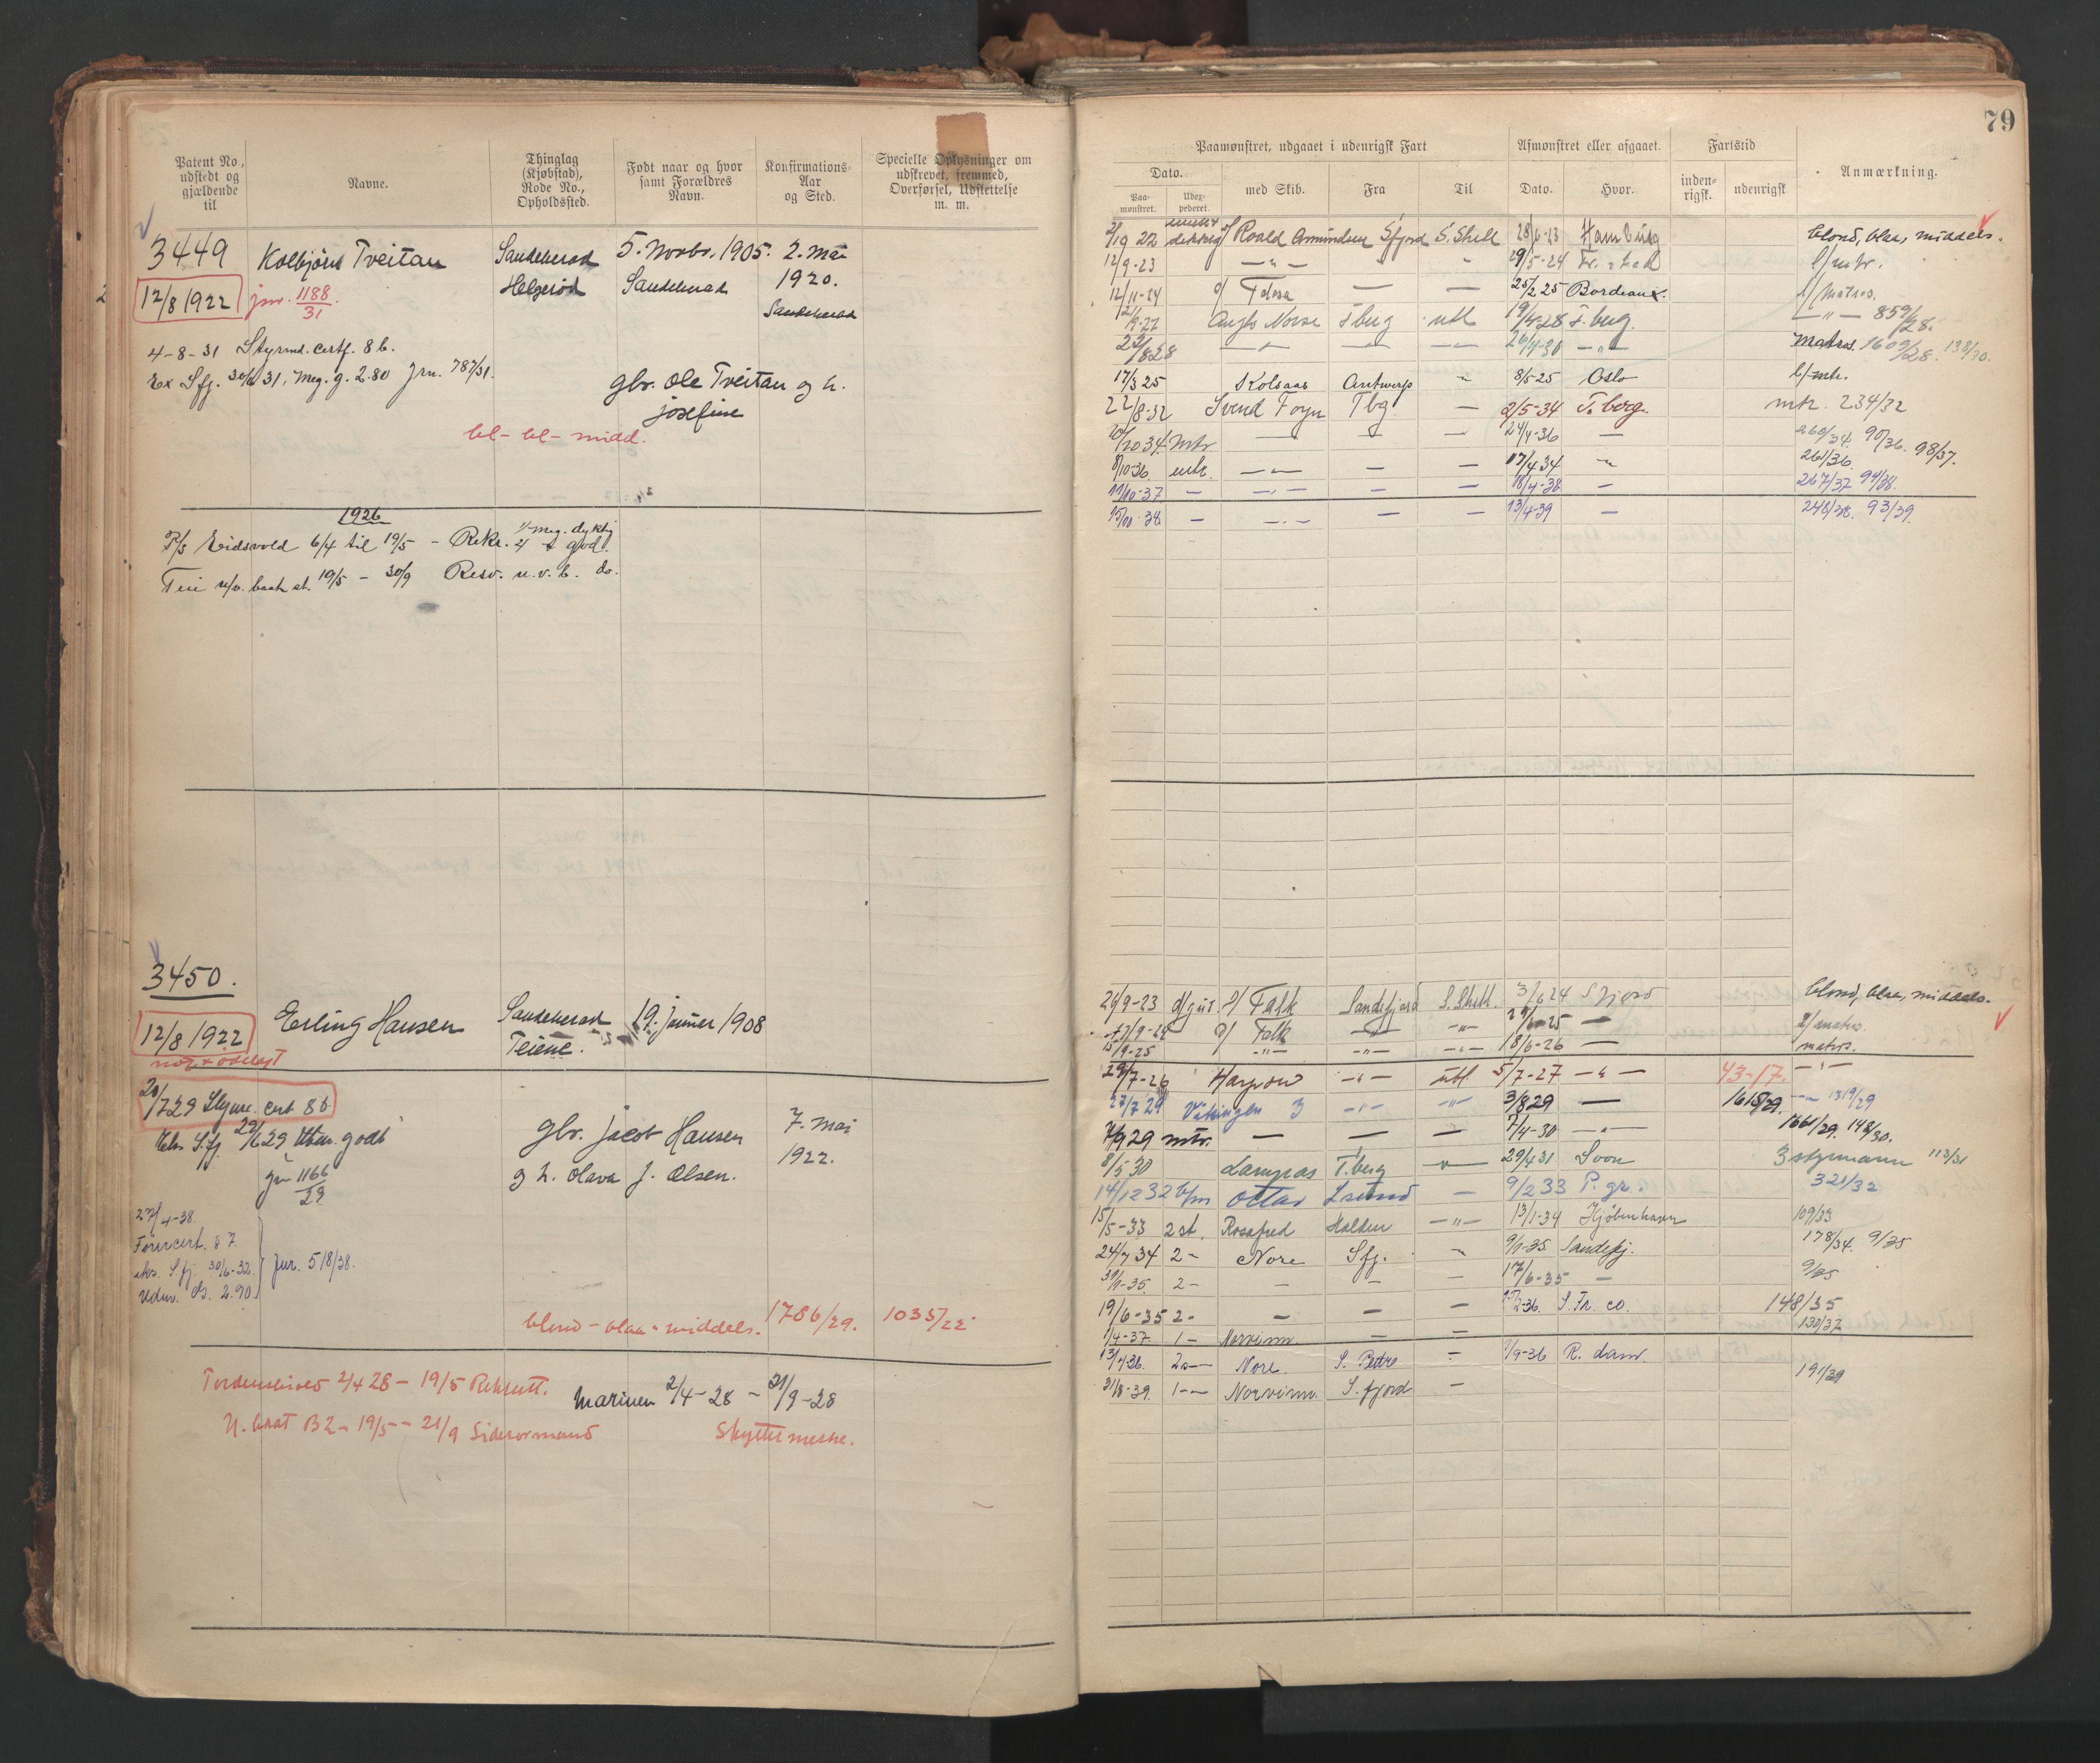 79
Patent No, udstedt og gjældende til
Navne.
Thinglag (Kjøbstad), Rode No., Opholdssted.
Født naar og hvor samt Forældres Navn.
Konfirmations-Aar og Sted.
Specielle Oplysninger om udskrevet, fremmed, Overførsel, Udslettelse m. m.
3449 Kolbjörn Tveitan Sandeherad 5. Novbr. 1905. 2. Mai
12/8 1922 jnr. 1188/31. Helgeröd Sandeherad 1920.
Sandeherad
4-8-31 Styrmd. certf. 8 b.
Ex Sfj. 31. Meg. g. 2.80 Jrn. 787/31.
gbr. Ole Tveitan og h.
Josefine
bl- bl- midd.
1926
P/s Eidsvold 6/4 til 19/5 - Rekr. meg. dyktig god.
19/5 - 30/9 Resv. u. v. b. do.
3450.
12/8 1922 Erling Hansen Sandeherad 19. Juner 1908
Teiene.
20/7 29 Styrm. cert 8 b.
Eks. S.fj. 29 godt
gbr. Jacob Hansen 7. Mai
jn 1166/29 g h. Olava J. Olsen. 1922.
27/4-38.
Förercert. § 7
eks. S. fj. 30/6-32. jnr. 518/38.
Udm. 2.90
blond - blaa - middels. 1786/29. 1035/22
Tordenskiold 2/4 28 - 19/5 Rekrutt. Marinen 2/4-28 - 21/9-28
B2 - 19/5 - 21/9 Sideormand
Paamønstret, udgaaet i udenrigsk Fart
Afmønstret eller afgaaet.
Fartstid
Anmærkning.
Dato.
Paa-mønstret.
Udex-pederet.
med Skib.
Fra
Til
Dato.
Hvor.
inden-rigsk.
udenrigsk
22 Roald Amundsen Sfjord S. Shetl 28/6-23 Hamburg blond, blaa, middels.
12/9-23 29/5-24
12/11-24 25/2 25 Bordeaux. l/matros.
Anglo Norse Tbug utl 19/4-28 T. bug. 859/28.
8 28 26/4-30 Matros. 1609/28. 138/30.
17/3 25 Kolsaas Antwerp 8/5-25 Oslo l/mtr.
22/8-32 Svend Foyn Tbg. — 2/5-34 T. berg. mtr. 234/32
34 Mtr — — — 24/4-36 — 260/34. 90/36. 98/37.
8/10-36 mtr. — — — 17/4 34 261/36.
11/10-37 — — — — 18/4-38 — 267/37 94/38.
15/10-38 — — — — 13/4-39 — 248/38. 93/39.
24/9-23 Falk Sandefjord S. Shetl. 3/6 24 S fjord blond, blaa, middels.
Falk — — 25 — l/matros.
15/9-25 — — — 18/6-26 — matros.
29/7-26 utl. 5/7-27 — 43-17.
27/7 29 Vikingen 3 3/8 29 — 1615/29. 1319/29
7/9 29 mtr. — — — 7/4-30 — 1661/29. 148/30.
8/5 30 T.berg 29/4 31 3 styrmann 113/31
14/12 32 Ottar — 9/2 33 P. gr. 321/32
15/5-33 2 st. Rosafred Halden — 13/1-34 Kjöbenhavn 109/33
24/7 34 2 - Nore Sfj. 9/1-35 Sandefj. 178/34. 9/35
35. 2 - — — — 17/6-35 — 9/35
19/6-35 2 - — — — S. Fr. co. 148/35
1/4-37. 1 — Norvinn — — 130/37
13/4 36. 2 — Nore. S. Pedro — 1/9-36 R. dam.
31/8-39. 1 — Norvinn. S. fjord — 191/39